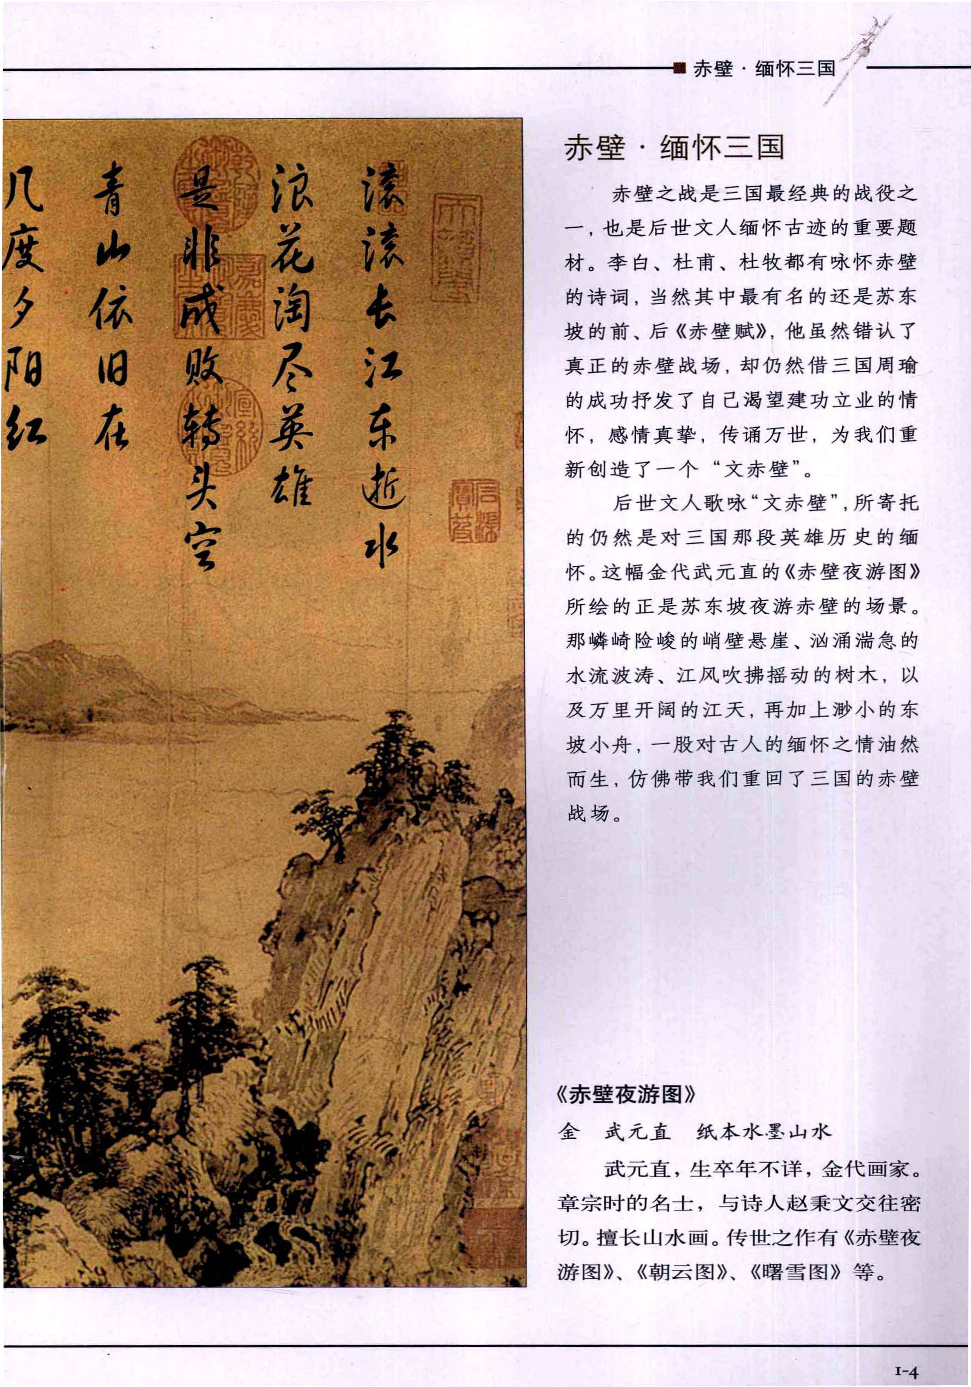 赤壁·缅怀三国
滚滚长江东逝水
浪花淘尽英雄
是非成败转头空
青山依旧在
几度夕阳红
赤壁·缅怀三国
赤壁之战是三国最经典的战役之
一，也是后世文人缅怀古迹的重要题
材。李白、杜甫、杜牧都有咏怀赤壁
的诗词，当然其中最有名的还是苏东
坡的前、后《赤壁赋》，他虽然错认了
真正的赤壁战场，却仍然借三国周瑜
的成功抒发了自己渴望建功立业的情
怀，感情真挚，传诵万世，为我们重
新创造了一个“文赤壁”。
后世文人歌咏“文赤壁”，所寄托
的仍然是对三国那段英雄历史的缅
怀。这幅金代武元直的《赤壁夜游图》
所绘的正是苏东坡夜游赤壁的场景。
那嶙崎险峻的峭壁悬崖、汹涌湍急的
水流波涛、江风吹拂摇动的树木，以
及万里开阔的江天，再加上渺小的东
坡小舟，一股对古人的缅怀之情油然
而生，仿佛带我们重回了三国的赤壁
战场。
《赤壁夜游图》
金 武元直 纸本水墨山水
武元直，生卒年不详，金代画家。
章宗时的名士，与诗人赵秉文交往密
切。擅长山水画。传世之作有《赤壁夜
游图》、《朝云图》、《曙雪图》等。
1-4